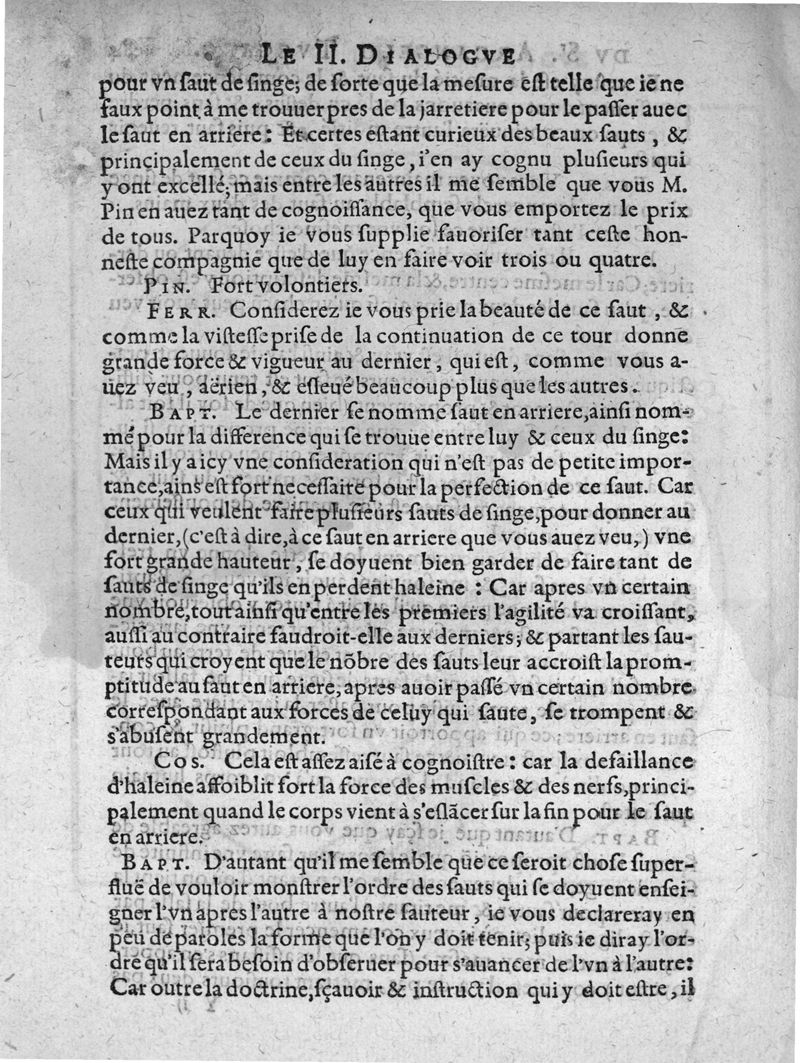 LE II. DIALOGVE
pour vn ſaut de ſinge; de ſorte que la meſure eſt telle que ie ne
faux point à me trouuer pres de la jarretiere pour le paſſer auec
le ſaut en arriere: Et certes eſtant curieux des beaux ſauts, &
principalement de ceux du ſinge, i'en ay cognu pluſieurs qui
y ont excellé; mais entre les autres il me ſemble que vous M.
Pin en auez tant de cognoiſſance, que vous emportez le prix
de tous. Parquoy ie vous ſupplie fauoriſer tant ceſte hon-
neſte compagnie que de luy en faire voir trois ou quatre.
PIN. Fort volontiers.
FERR. Conſiderez ie vous prie la beauté de ce ſaut, &
comme la viſteſſe priſe de la continuation de ce tour donne
grande force & vigueur au dernier, qui eſt, comme vous a-
uez veu, aërien, & eſleué beaucoup plus que les autres.
BAPT. Le dernier ſe nomme ſaut en arriere, ainſi nom-
mé pour la difference qui ſe trouue entre luy & ceux du ſinge:
Mais il y a icy vne conſideration qui n'eſt pas de petite impor-
tance, ains eſt fort neceſſaire pour la perfection de ce ſaut. Car
ceux qui veulent faire pluſieurs ſauts de ſinge, pour donner au
dernier, (c'eſt à dire, à ce ſaut en arriere que vous auez veu,) vne
fort grande hauteur, ſe doyuent bien garder de faire tant de
ſauts de ſinge qu'ils en perdent haleine : Car apres vn certain
nombre, tout ainſi qu'entre les premiers l'agilité va croiſſant,
auſſi au contraire faudroit-elle aux derniers; & partant les ſau-
teurs qui croyent que le nõbre des ſauts leur accroiſt la prom-
ptitude au ſaut en arriere, apres auoir paſſé vn certain nombre
correſpondant aux forces de celuy qui ſaute, ſe trompent &
s'abuſent grandement.
COS. Cela eſt aſſez aiſé à cognoiſtre : car la defaillance
d'haleine affoiblit fort la force des muſcles & des nerfs, princi-
palement quand le corps vient à s'eſlãcer ſur la fin pour le ſaut
en arriere.
BAPT. D'autant qu'il me ſemble que ce ſeroit choſe ſuper-
fluë de vouloir monſtrer l'ordre des ſauts qui ſe doyuent enſei-
gner l'vn apres l'autre à noſtre ſauteur, ie vous declareray en
peu de paroles la forme que l'on y doit tenir; puis ie diray l'or-
dre qu'il ſera beſoin d'obſeruer pour s'auancer de l'vn à l'autre:
Car outre la doctrine, ſçauoir & inſtruction qui y doit eſtre, il